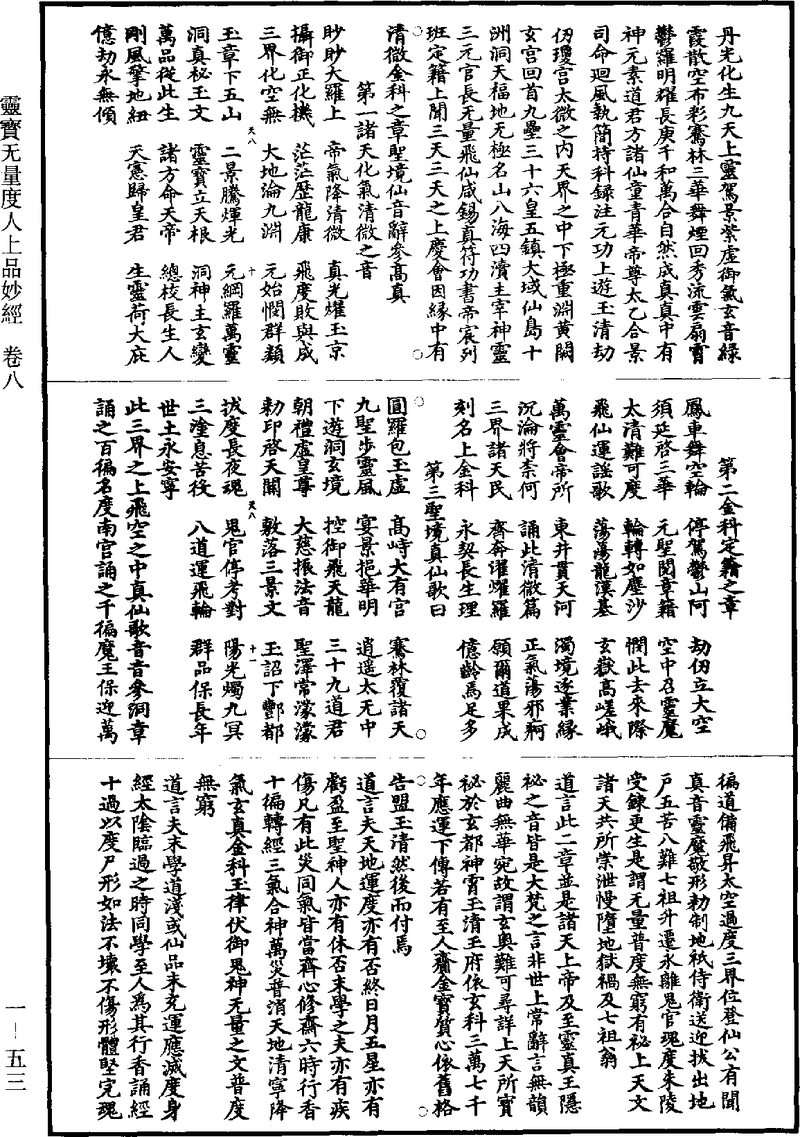 丹光化生九天上靈駕景紫虛御氣玄音綠
霞散空布彩騫林三華舞煙回秀流雲扇霄
鬱羅明耀長庚千和萬合自然成真真中有
神元素道君方諸仙童青華帝尊太乙合景
司命迴風執簡持科録注元功上遊玉清劫
仞瓊宫太微之内天界之中下極重淵黄闕
玄宫回首九壘三十六皇五鎮大域仙島十
洲洞天福地无極名山八海四瀆主宰神靈
三元官長无量飛仙咸錫真符功書帝宸列
班定籍上聞三天三天之上慶會因緣中有
清微金科之章聖境仙音辭參高真
第一諸天化氣清微之音
眇眇大羅上 帝氣降清微 真光耀玉京
攝御正化機 茫茫歷龍康 飛度敗與成
三界化空無 大地淪九淵 元始憫群類
天八 十
玉章下五山 二景騰煇光 元綱羅萬靈
洞真祕玉文 靈寶立天根 洞神主玄變
萬品從此生 諸方命天帝 總校長生人
剛風擎地紐 天憲歸皇君 生靈荷大庇
億劫永無傾
第二金科定籍之章
鳳車舞空輪 停駕鬱山阿 劫仞立大空
須延啓三華 元聖閱章籍 空中召靈魔
太清難可度 輪轉如塵沙 憫此去來際
飛仙運謡歌 蕩蕩龍漢基 玄嶽高嵯峨
萬靈會帝所 東井貫天河 濁境逐業緣
沉淪將柰何 誦此清微篇 正氣蕩邪軻
三界諸天民 齊奔躍耀羅 領爾道果成
刻名上金科 永契長生理 億齡焉足多
第三聖境真仙歌曰
圓羅包玉虛 高峙大有宫 騫林覆諸天
九聖步靈風 宴景挹華明 逍遥太无中
下遊洞玄境 控御飛天龍 三十九道君
朝禮虛皇尊 大慈振法音 聖澤常濛濛
勑印啓天關 敷落三景文 玉詔下酆都
天八 十一
拔度長夜魂 鬼官停考對 陽光燭九冥
三塗息苦役 八道運飛輪 群品保長年
世土永安寧
此三界之上飛空之中真仙歌音音參洞章
誦之百徧名度南宫誦之千徧魔王保迎萬
徧道備飛昇太空過度三界位登仙公有聞
真音靈魔敬形勑制地祇侍衛送迎拔出地
户五苦八難七祖升遷永離鬼官魂度朱陵
受鍊更生是謂无量普度無窮有祕上天文
諸天共所崇泄慢墮地獄禍及七祖翁
道言此二章並是諸天上帝及至靈真王隱
祕之音皆是大梵之言非世上常辭言無韻
麗曲無華宛故謂玄奥難可尋詳上天所寳
祕於玄都神霄玉清玉府依玄科三萬七千
年應運下傳若有至人齎金寳質心依舊格
告盟玉清然後而付焉
道言夫天地運度亦有否終日月五星亦有
虧盈至聖神人亦有休否末學之夫亦有疾
傷凡有此災同氣皆當齊心修齋六時行香
十徧轉經三氣合神萬災普消天地清寧降
氣玄真金科玉律伏御鬼神无量之文普度
無窮
道言夫末學道淺或仙品未充運應滅度身
經太陰臨過之時同學至人爲其行香誦經
十過以度尸形如法不壞不傷形體堅完魂
靈寳无量度人上品妙經 卷八
一—五三